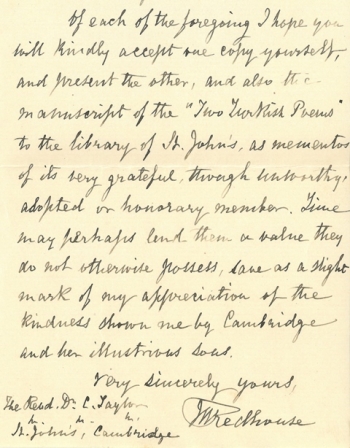 Of each of the foregoing I hope you
will kindly accept one copy yourself,
and present the other, and also the
manuscript of the "Two Turkish Poems"
to the library of St. John's, as mementos
of its very grateful, though unworthy,
adopted or honorary member. Time
may perhaps lend them a value they
do not otherwise possess, save as a slight
mark of my appreciation of the
kindness shown me by Cambridge
and her illustrious sons.
Very sincerely yours,
The Revd. Dr. C. Taylor
JWRedhouse
St. John's, Cambridge